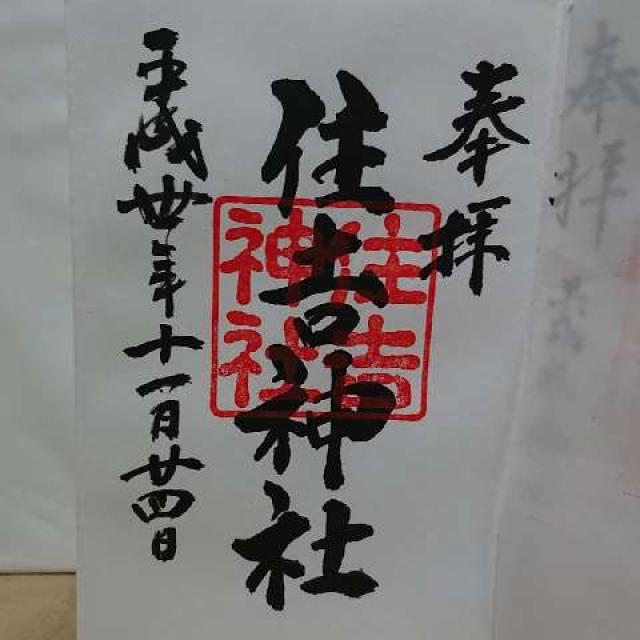 奉拝
住吉神社
住吉
神社
平成卅年十一月廿四日
奉拝